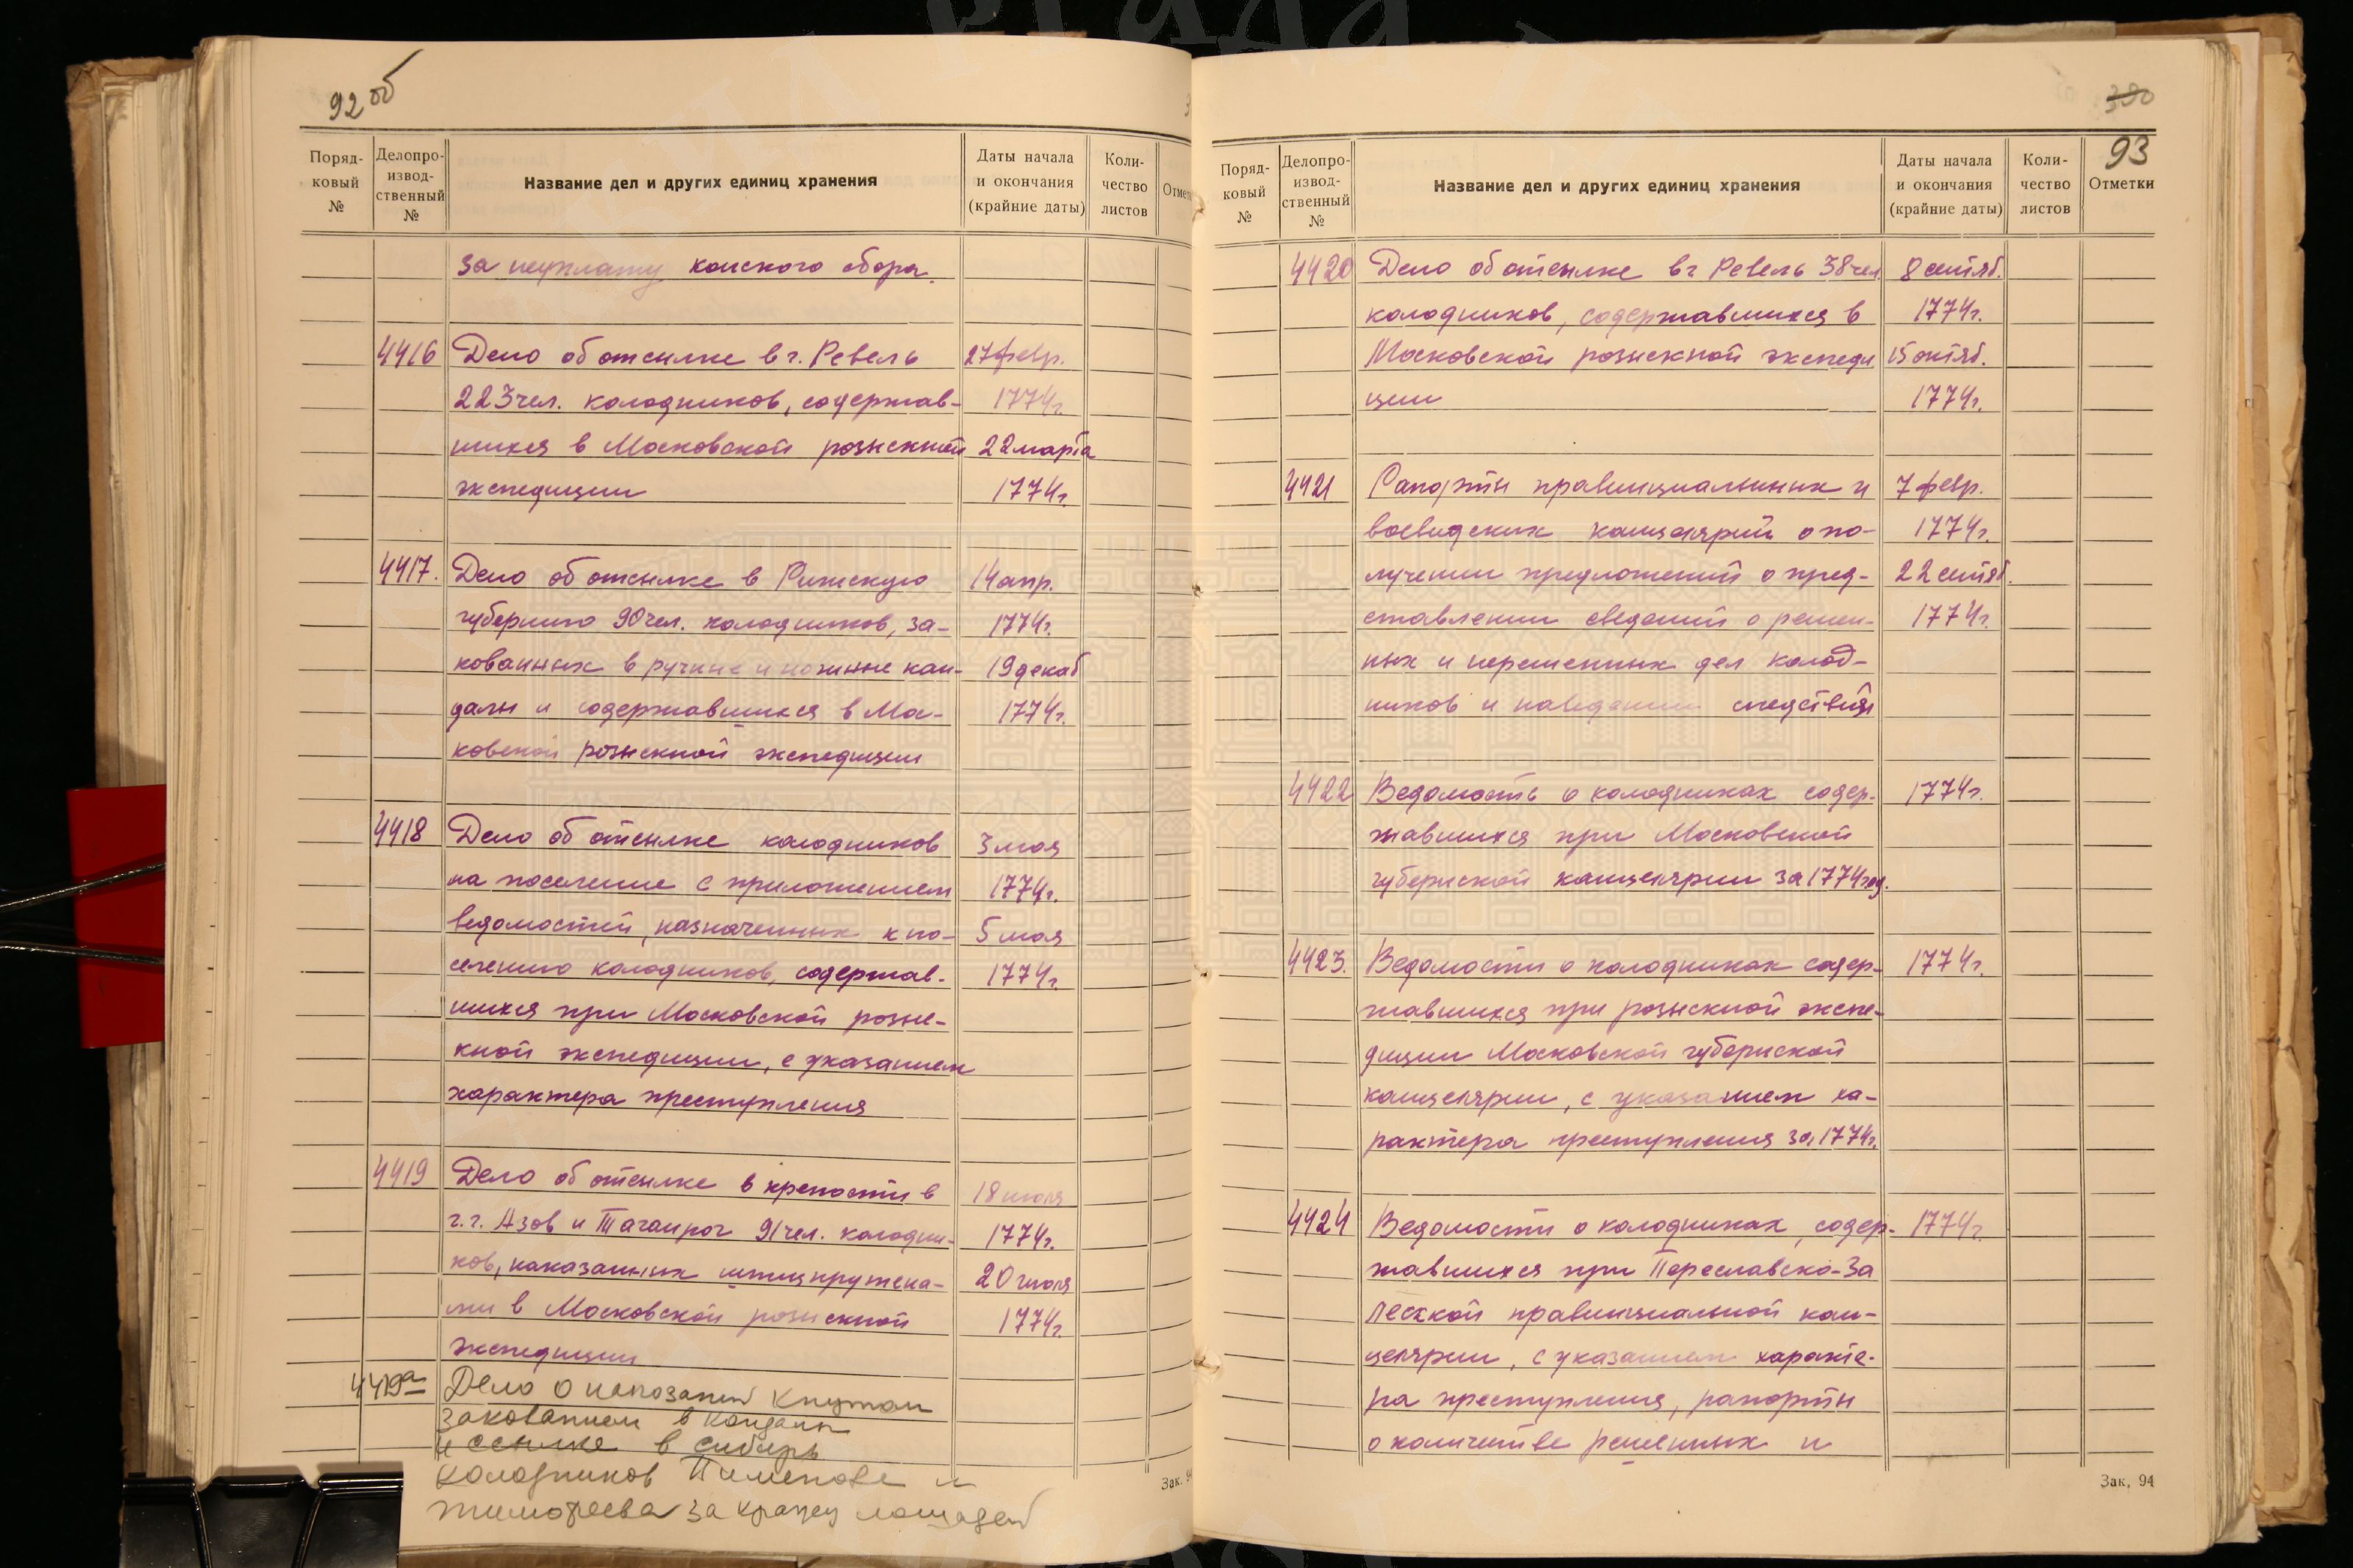 92об
Поряд-
ковый
№
Делопро-
извод-
ственный
№
Название дел и других единиц хранения
Даты начала
и окончания
(крайние даты)
Коли-
чество
листов
за неуплату конского сбора.
4416 Дело об отсылке в г. Ревель 27 февр.
223 чел. колодников, содержав- 1774г.
шихся в Московской розыскной 22 марта
экспедиции 1774г.
4417. Дело об отсылке в Рижскую 14 апр.
губернию 90 чел. колодников, за- 1774г.
кованных в ручные и ножные кан- 19 декаб
далы и содержавшихся в Мос- 1774г.
ковской розыскной экспедиции
4418 Дело об отсылке колодников 3 мая
на поселение с приложением 1774г.
ведомостей, назначенных к по- 5 мая
селению колодников, содержав- 1774г.
шихся при Московской розыс-
кной экспедиции, с указанием
характера преступления
4419 Дело об отсылке в крепости в 18 июля
г.г. Азов и Таганрог 91 чел. колодни- 1774г.
ков, наказанных шпицрутена- 20 июля
ми в Московской розыскной 1774г.
экспедиции
4419а Дело о наказании кнутом
закованием в кандалы
и ссылке в Сибирь
колодников Пименова и
Тимофеева за кражу лошадей
Зак. 94
390
93
Поряд-
ковый
№
Делопро-
извод-
ственный
№
Название дел и других единиц хранения
Даты начала
и окончания
(крайние даты)
Коли-
чество
листов
Отметки
4420 Дело об отсылке в г Ревель 38 чел. 8 сентяб.
колодников, содержавшихся в 1774г.
Московской розыскной экспеди 15 октяб.
ции 1774г.
4421 Рапорты правинциальных и 7 февр.
воеводских канцелярий о по- 1774г.
лучении предложений о пред- 22 сентяб.
ставлении сведений о решен- 1774г.
ных и нерешенных дел колод-
ников и наведении следствия
4422 Ведомость о колодниках содер- 1774г.
жавшихся при Московской
губернской канцелярии за 1774 год.
4423. Ведомости о колодниках содер- 1774г.
жавшихся при розыскной экспе-
диции Московской губернской
канцелярии, с указанием ха-
рактера преступления за 1774г.
4424 Ведомости о колодниках, содер- 1774г.
жавшихся при Переславско-За
лесской правинциальной кан-
целярии, с указанием характе-
ра преступления, рапорты
о количестве решенных и
Зак. 94